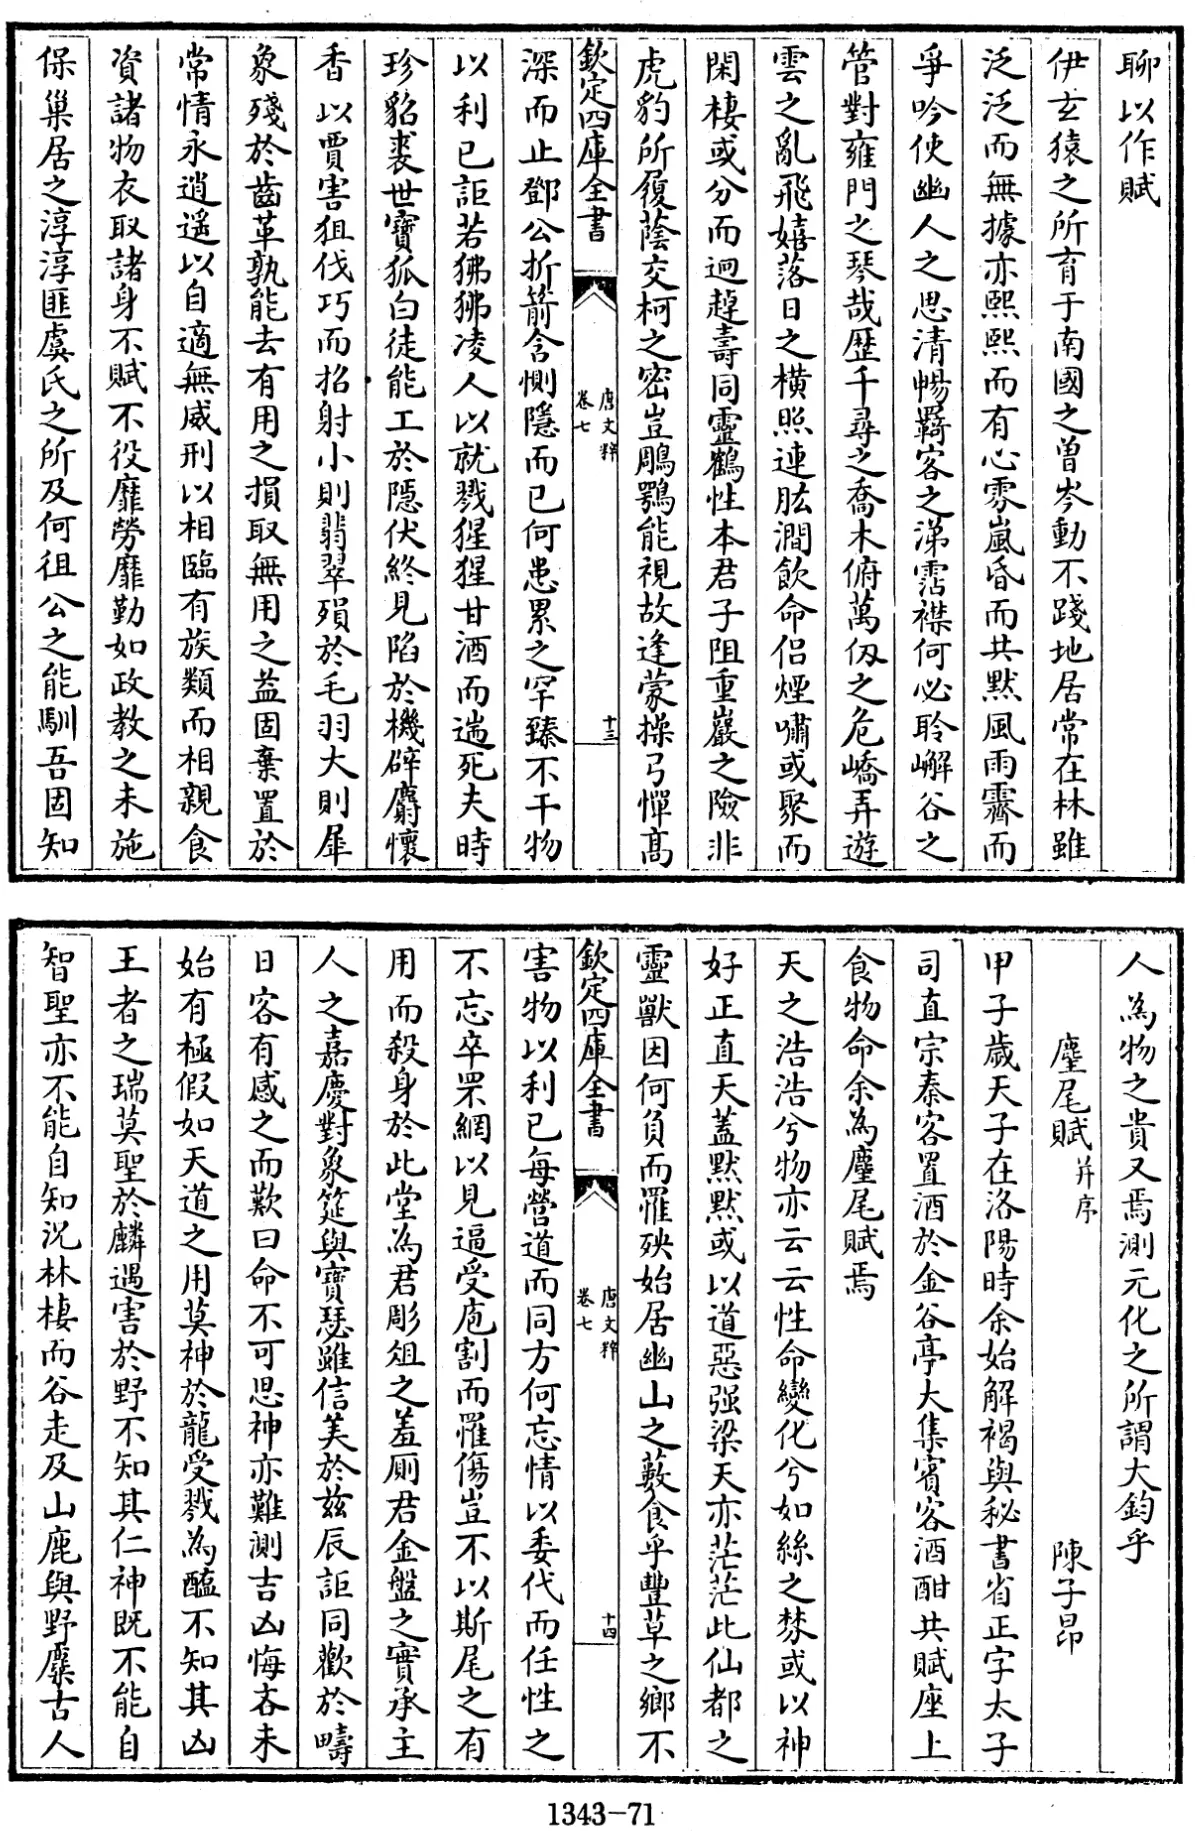 聊以作賦
伊玄猿之所育于南國之曽岑動不踐地居常在林雖
泛泛而無據亦熙熙而有心霧嵐昏而共黙風雨霽而
爭吟使幽人之思清暢羇客之涕霑襟何必聆嶰谷之
管對雍門之琴哉歴千尋之喬木俯萬仭之危嶠弄遊
雲之亂飛嬉落日之横照連肱澗飲命侣煙嘯或聚而
閑棲或分而迥趠壽同靈鶴性本君子阻重巖之險非
虎豹所履蔭交柯之密豈鵰鶚能視故逢蒙操弓憚髙
欽定四庫全書
唐文粹
卷七
十三
深而止鄧公折箭含惻隱而已何患累之罕臻不干物
以利已詎若狒狒凌人以就戮猩猩甘酒而遄死夫時
珍貂裘世寶狐白徒能工於隱伏終見陷於機辟麝懷
香以賈害狙伐巧而招射小則翡翠殞於毛羽大則犀
象殘於齒革孰能去有用之損取無用之益固棄置於
常情永逍遥以自適無威刑以相臨有族類而相親食
資諸物衣取諸身不賦不役靡勞靡勤如政教之未施
保巢居之淳淳匪虞氏之所及何徂公之能馴吾固知
人為物之貴又焉測元化之所謂大鈞乎
麈尾賦并序
陳子昂
甲子歲天子在洛陽時余始解褐與秘書省正字太子
司直宗秦客置酒於金谷亭大集賓客酒酣共賦座上
食物命余為麈尾賦焉
天之浩浩兮物亦云云性命變化兮如絲之棼或以神
好正直天蓋黙黙或以道惡强梁天亦茫茫此仙都之
靈獸因何負而罹殃始居幽山之藪食乎豐草之鄉不
欽定四庫全書
唐文粹
卷七
十四
害物以利已每營道而同方何忘情以委代而任性之
不忘卒罘網以見逼受庖割而罹傷豈不以斯尾之有
用而殺身於此堂為君彫俎之羞厠君金盤之實承主
人之嘉慶對象筵與寶瑟雖信美於兹辰詎同歡於疇
日客有感之而歎曰命不可思神亦難測吉凶悔吝未
始有極假如天道之用莫神於龍受戮為醢不知其凶
王者之瑞莫聖於麟遇害於野不知其仁神既不能自
智聖亦不能自知况林棲而谷走及山鹿與野麋古人
1343-71